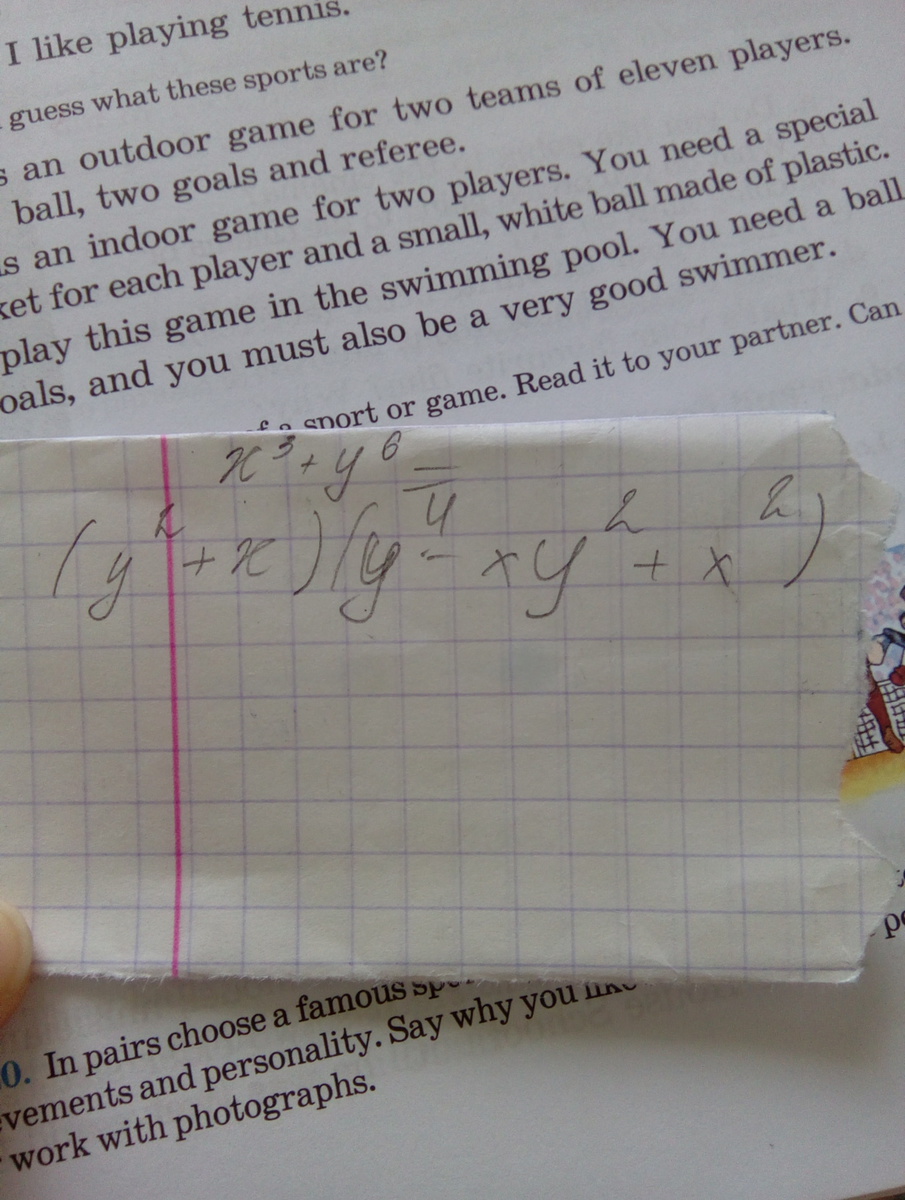 I like playing tennis.
guess what these sports are?
s an outdoor game for two teams of eleven players.
ball, two goals and referee.
is an indoor game for two players. You need a special
ket for each player and a small, white ball made of plastic.
play this game in the swimming pool. You need a ball
oals, and you must also be a very good swimmer.
f a sport or game. Read it to your partner. Can
x³+y⁶=
(y²+x)(y⁴-xy²+x²)
0. In pairs choose a famous spo
evements and personality. Say why you like
work with photographs.